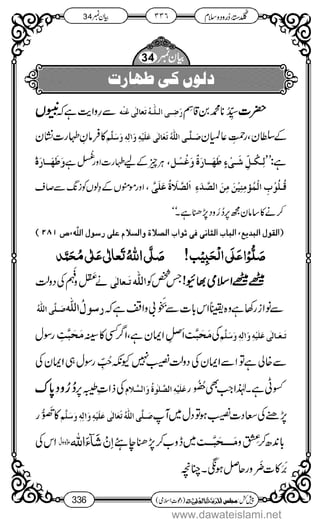 گلدستۂ درود و سلام ۳۳۶ بیان نمبر 34
بیان نمبر 34
دلوں کی طھارت
حضرت سیِّدُنا محمد بن قاسم رَضِیَ اللّٰہُ تَعَالٰی عَنْہ سے روایت ہے کہ نبیوں
کے سلطان، رحمتِ عالمیان صَلَّی اللّٰہُ تَعَالٰی عَلَیْہِ وَاٰلِہٖ وَسَلَّم کا فرمانِ طہارت نشان
ہے: ”لِکُلِّ شَیْءٍ طَہَارَۃٌ وَغُسْلٌ، ہر چیز کے لیے طہارت اور غسل ہے وَطَہَارَۃُ
قُلُوْبِ الْمُؤْمِنِیْنَ مِنَ الصَّدَاءِ الصَّلَاۃُ عَلَیَّ، اور مومنوں کے دلوں کو زنگ سے صاف
کرنے کا سامان مجھ پر دُرُود پڑھنا ہے۔“
(القول البدیع، الباب الثانی فی ثواب الصلاۃ والسلام علی رسول اللہ، ص ۲۸۱)
صَلُّوْا عَلَی الْحَبِیْب! صَلَّی اللّٰہُ تَعَالٰی عَلٰی مُحَمَّد
میٹھے میٹھے اسلامی بھائیو! جس شخص کو اللہ تَعَالٰی نے عقل و فہم کی دولت
سے نواز رکھا ہے وہ یقیناً اس بات سے بخوبی واقف ہے کہ رسول اللہ صَلَّی اللّٰہُ
تَعَالٰی عَلَیْہِ وَاٰلِہٖ وَسَلَّم کی مَحَبَّت اصلِ ایمان ہے، اگر کسی کا سینہ مَحَبَّتِ رسول
سے خالی ہے تو اسے ایمان کی دولت نصیب نہیں کیونکہ حُبِّ رسول ہی ایمان کی
کسوٹی ہے۔ لہٰذا جب بھی حضور عَلَیْہِ الصَّلٰوۃُ وَالسَّلَام کی ذاتِ طیبہ پر دُرُودِ پاک
پڑھنے کی سعادت نصیب ہو تو دل میں آپ صَلَّی اللّٰہُ تَعَالٰی عَلَیْہِ وَاٰلِہٖ وَسَلَّم کا تصوُّر
باندھ کر عشق و مَحَبَّت میں ڈوب کر پڑھنا چاہئے اِنْ شَآءَ اللّٰہ عَزَّوَجَلَّ اس کی
بَرَکات ضَرور حاصل ہوں گی۔ چنانچہ
336
www.dawateislami.net